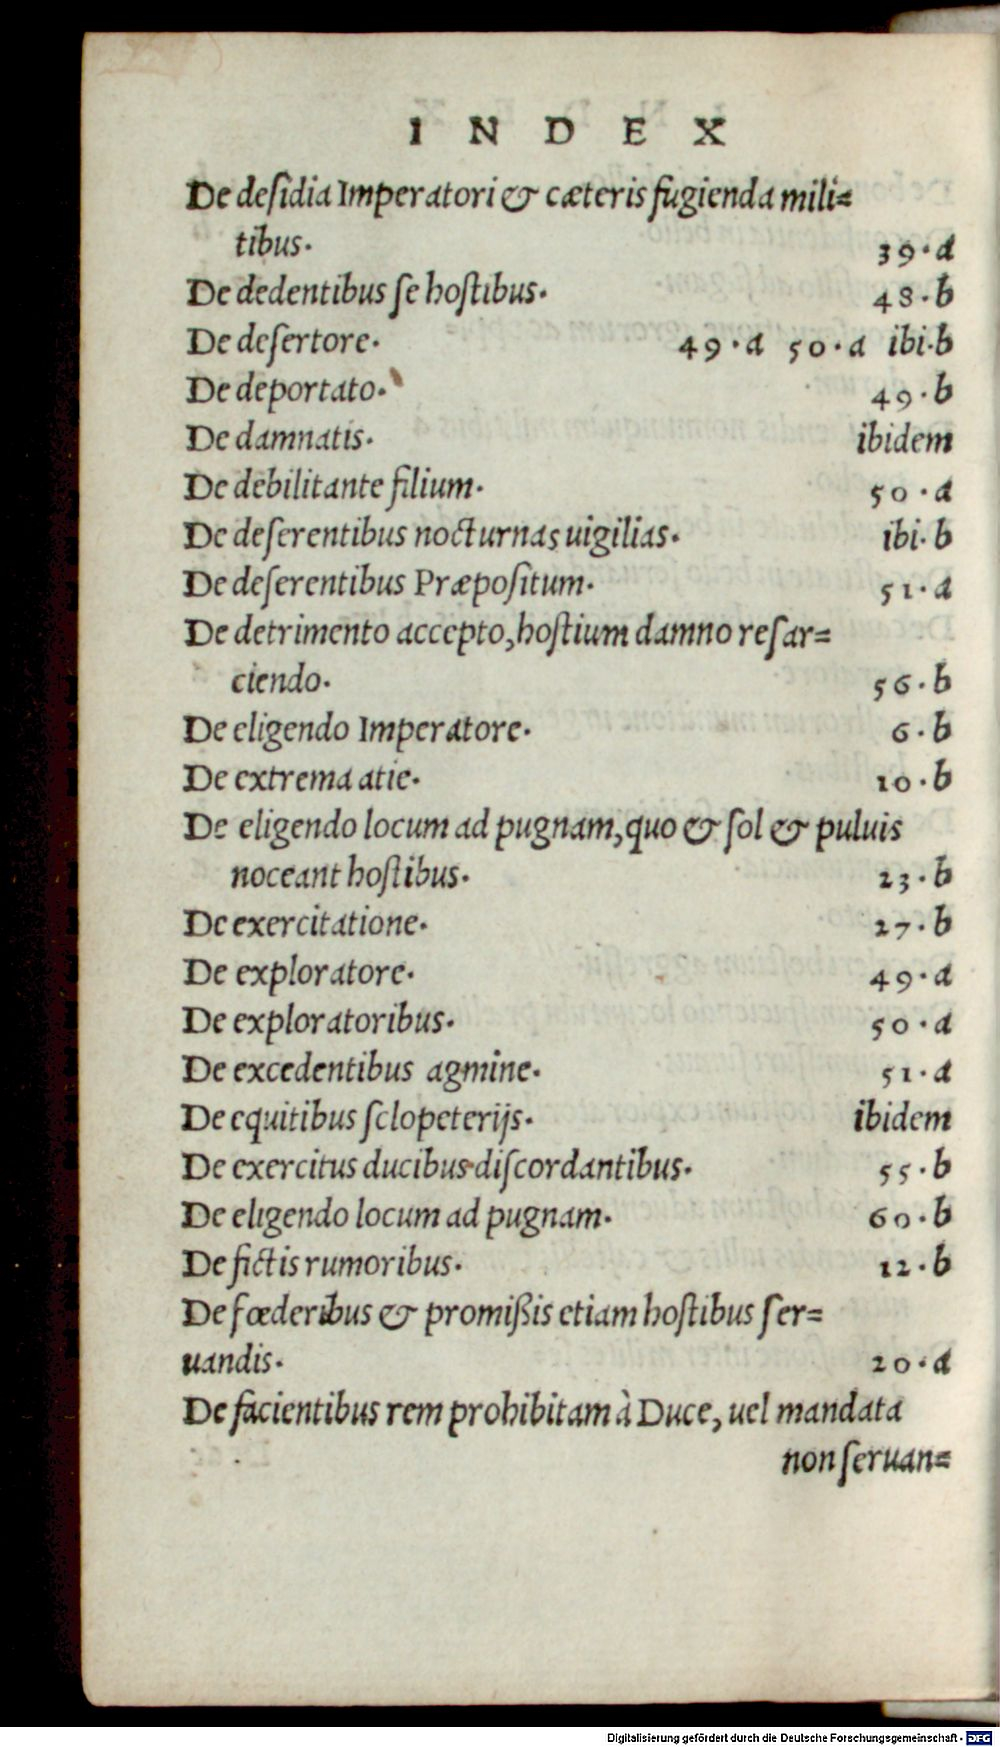 INDEX
De desidia Imperatori & cæteris fugienda mili=
tibus. 39.a
De dedentibus se hostibus. 48.b
De desertore. 49.a 50.a ibi.b
De deportato. 49.b
De damnatis. ibidem
De debilitante filium. 50.a
De deserentibus nocturnas uigilias. ibi.b
De deserentibus Præpositum. 51.a
De detrimento accepto, hostium damno resar=
ciendo. 56.b
De eligendo Imperatore. 6.b
De extrema atie. 10.b
De eligendo locum ad pugnam, quo & sol & puluis
noceant hostibus. 23.b
De exercitatione. 27.b
De exploratore. 49.a
De exploratoribus. 50.a
De excedentibus agmine. 51.a
De equitibus sclopeterijs. ibidem
De exercitus ducibus discordantibus. 55.b
De eligendo locum ad pugnam. 60.b
De fictis rumoribus. 12.b
De fœderibus & promißis etiam hostibus ser=
uandis. 20.a
De facientibus rem prohibitam à Duce, uel mandata
non seruan=
Digitalisierung gefördert durch die Deutsche Forschungsgemeinschaft - DFG